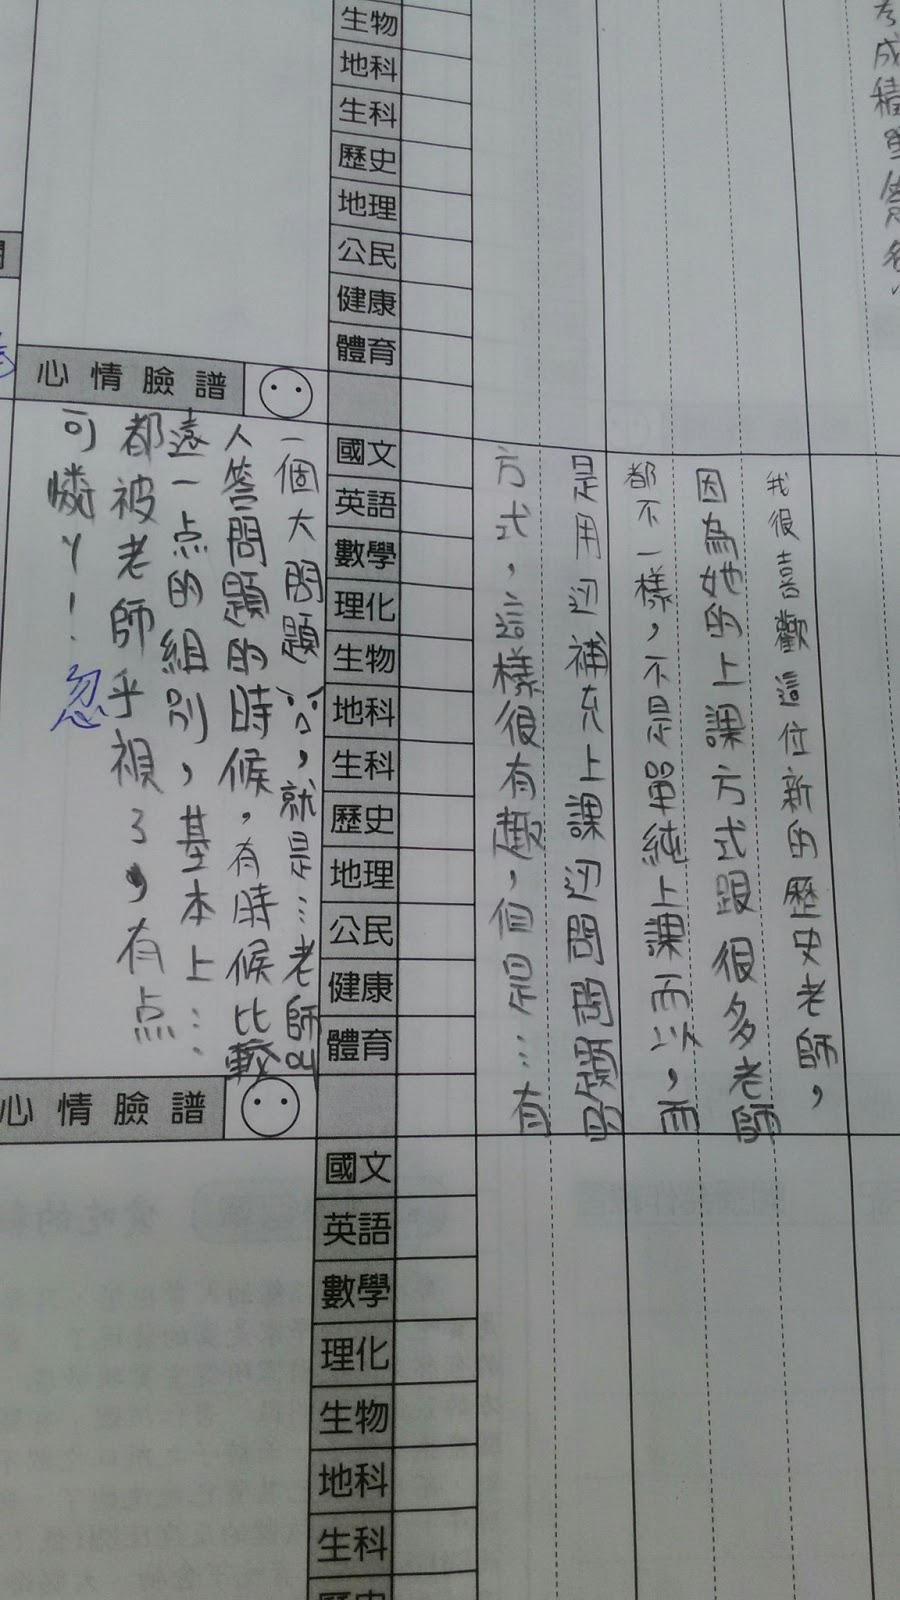 生物
地科
生科
歷史
地理
公民
健康
體育
心情臉譜
我很喜歡這位新的歷史老師，
因為她的上課方式跟很多老師
都不一樣，不是單純上課而以，而
是用边補充上課边問問題的
方式，這樣很有趣，但是…有
國文
英語
數學
理化
生物
地科
生科
歷史
地理
公民
健康
體育
一個大問題，就是…老師叫
人答問題的時候，有時候比較
遠一点的組別，基本上…
都被老師乎視了，有点
可憐ㄚ！
忽
心情臉譜
國文
英語
數學
理化
生物
地科
生科
歷史